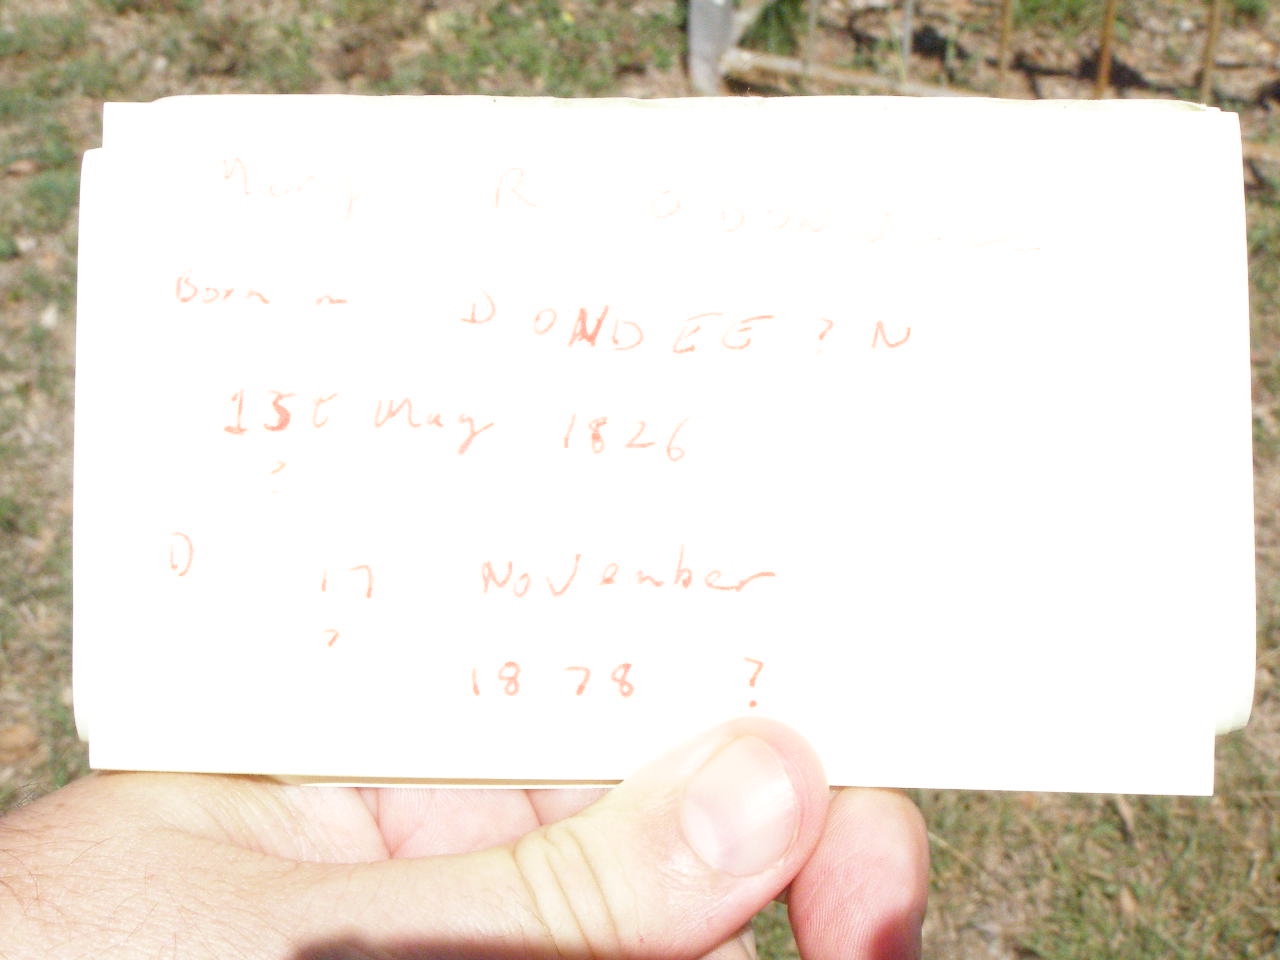 Mary R O
Born in DONDEE ? N
1st May 1826
?
D 17 November
?
1878 ?